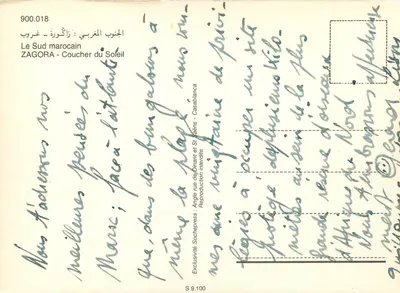 900.018
الجنوب المغربي : زاكورة - غروب
Le Sud marocain
ZAGORA - Coucher du Soleil
Nous t'adressons nos
meilleures pensées du
Maroc ; face à l'atlantique
que, dans des bungalows à
même la plage, nous som-
mes une vingtaine de privi-
légiés à occuper un site
protégé, de plusieurs kilo-
mètres au sein de la plus
grande réserve d'oiseaux
d'Afrique du Nord.
Nous t'embrassons affectueuse
ment
Exclusivité Sochepress : Angle rue de Dinant et St Saëns - Casablanca
Reproduction interdite
S 9.100